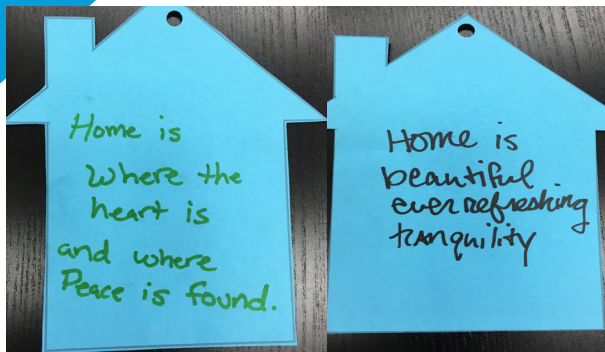 Home is
where the
heart is
and where
Peace is found.
Home is
beautiful
ever refreshing
tranquility